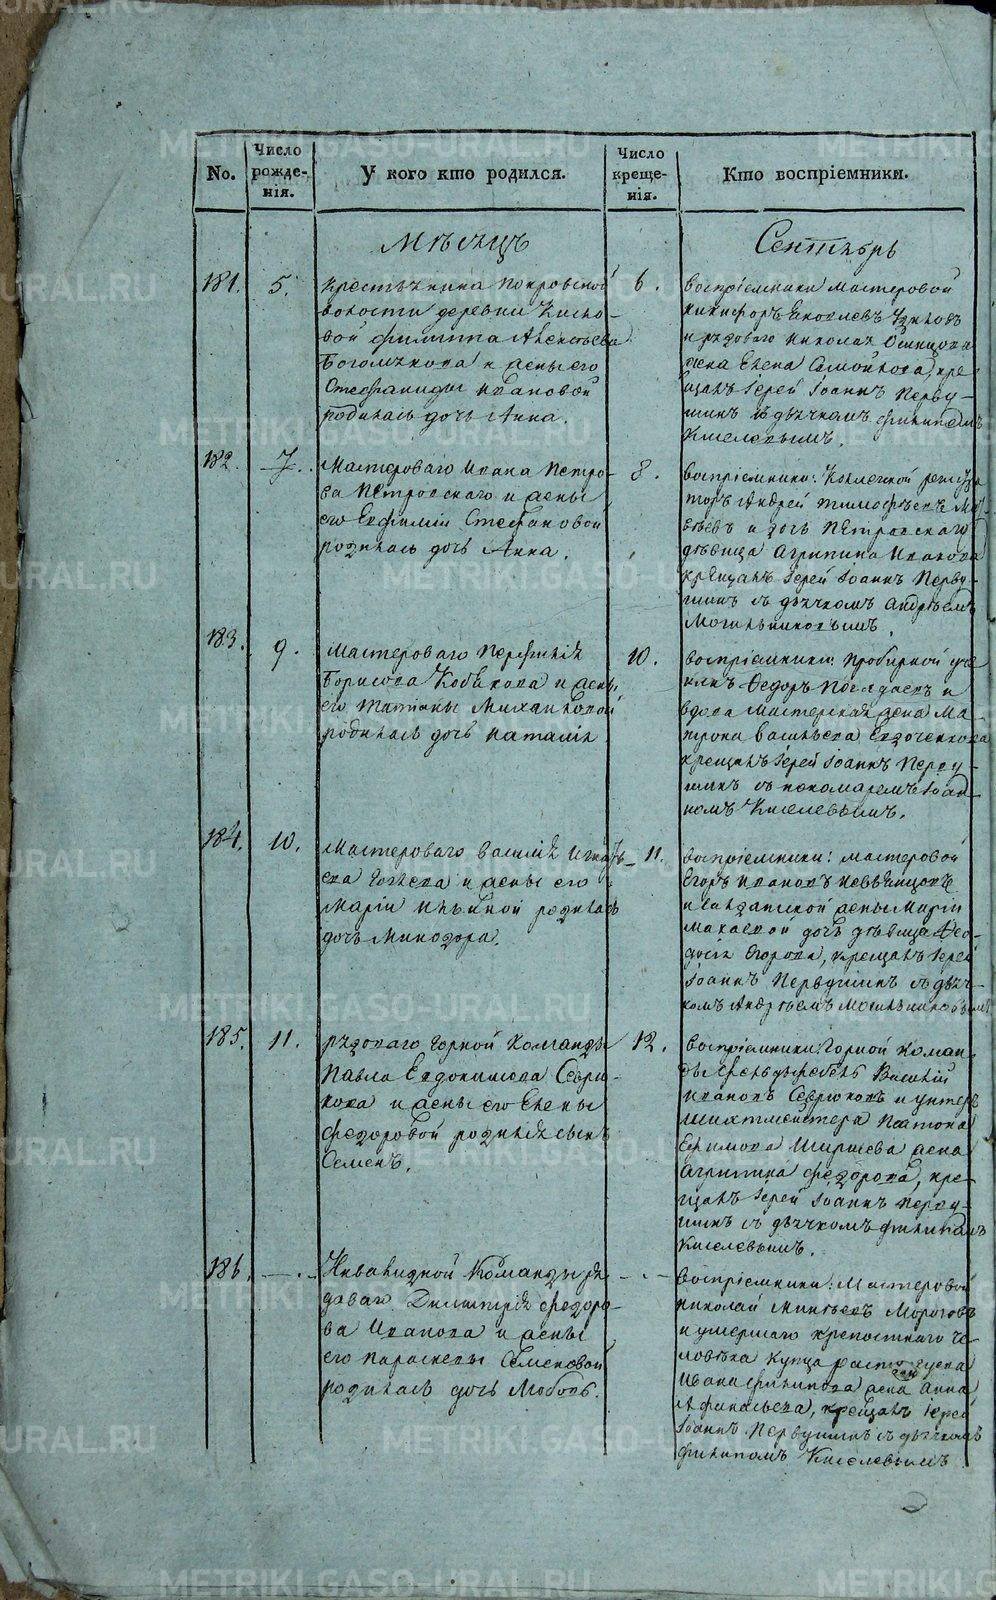 No.
Число рожде- нія.
У кого кто родился.
Число креще- нія.
Кто воспріемники.
Мѣсяцъ
Сентябрь
181.
5.
Крестьянина Покровской
волости деревни
Филиппа
и жены его
Стефаниды Ивановой
родилась дочь Анна.
6.
Воспріемники мастеровой
Никифоръ Яковлевъ
и рядоваго Николая
жена Елена кре-
щалъ Іерей Іоаннъ Перву-
шинъ съ дьячкомъ Филипомъ
Киселевымъ.
182.
7.
Мастероваго Ивана Петро-
ва Петровскаго и жены
его Евфиміи Стефановой
родилась дочь Анна.
8.
Воспріемники: Коллежской регистра
торъ Андрей Тимофѣевъ
и дочь Петровскаго
дѣвица Агрипина Иванова
крещалъ Іерей Іоаннъ Перву-
шинъ съ дьячкомъ Андреемъ
Могильниковымъ.
183.
9.
Мастероваго
Борисова и жены
его Татьяны Михайловой
родилась дочь Наталія
10.
воспріемники: Пробирной уче
никъ Федоръ и
вдова мастерская жена Ма-
трона Васильева
крещалъ Іерей Іоаннъ Перву-
шинъ съ пономаремъ Іоан-
номъ Киселевымъ.
184.
10.
Мастероваго Василія Игнать-
ева и жены его
Маріи Ильиной родилась
дочь Минодора.
11.
воспріемники: мастеровой
Егоръ Ивановъ
и солдатской жены Маріи
дочь дѣвица Фео-
досія Егорова, крещалъ Іерей
Іоаннъ Первушинъ съ дьяч-
комъ Андреемъ Могильниковымъ
185.
11.
рядоваго Горной Команды
Павла Евдокимова Севрю-
кова и жены его Елены
Федоровой родился сынъ
Семенъ.
12.
Воспріемники: Горной Коман-
ды Фельдфебель Василій
Ивановъ Севрюковъ и унтеръ
шихтмейстера Платона
Ефимова Ширшева жена
Агрипина Федорова, кре-
щалъ Іерей Іоаннъ Перву-
шинъ съ дьячкомъ Филипомъ
Киселевымъ.
186.
—.—
Инвалидной Команды ря
доваго Димитрія Федоро-
ва Иванова и жены
его Параскевы Семеновой
родилась дочь Любовь.
—.—
Воспріемники: Мастеровой
Николай Морозовъ
и умершаго крепостнаго че-
ловѣка купца
Ивана Филипова жена Анна
Афанасьева, крещалъ Іерей
Іоаннъ Первушинъ съ дьячкомъ
Филипомъ Киселевымъ
METRIKI.GASO-URAL.RU